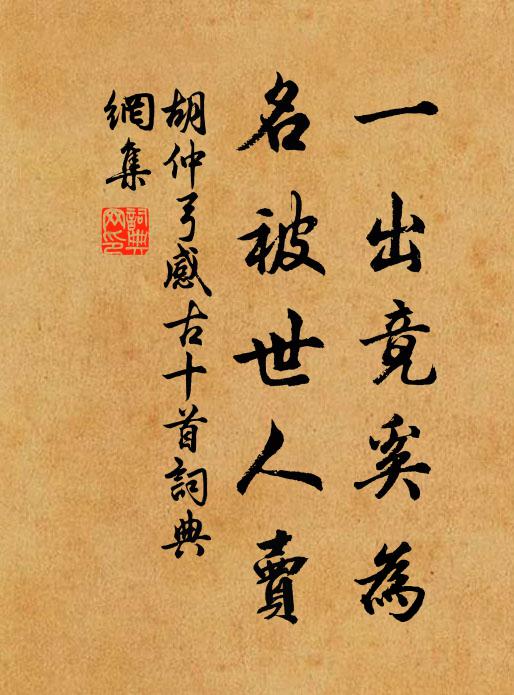 一出竟奚為
名被世人賣
胡仲弓感古十首詞典
網集
詞典網印